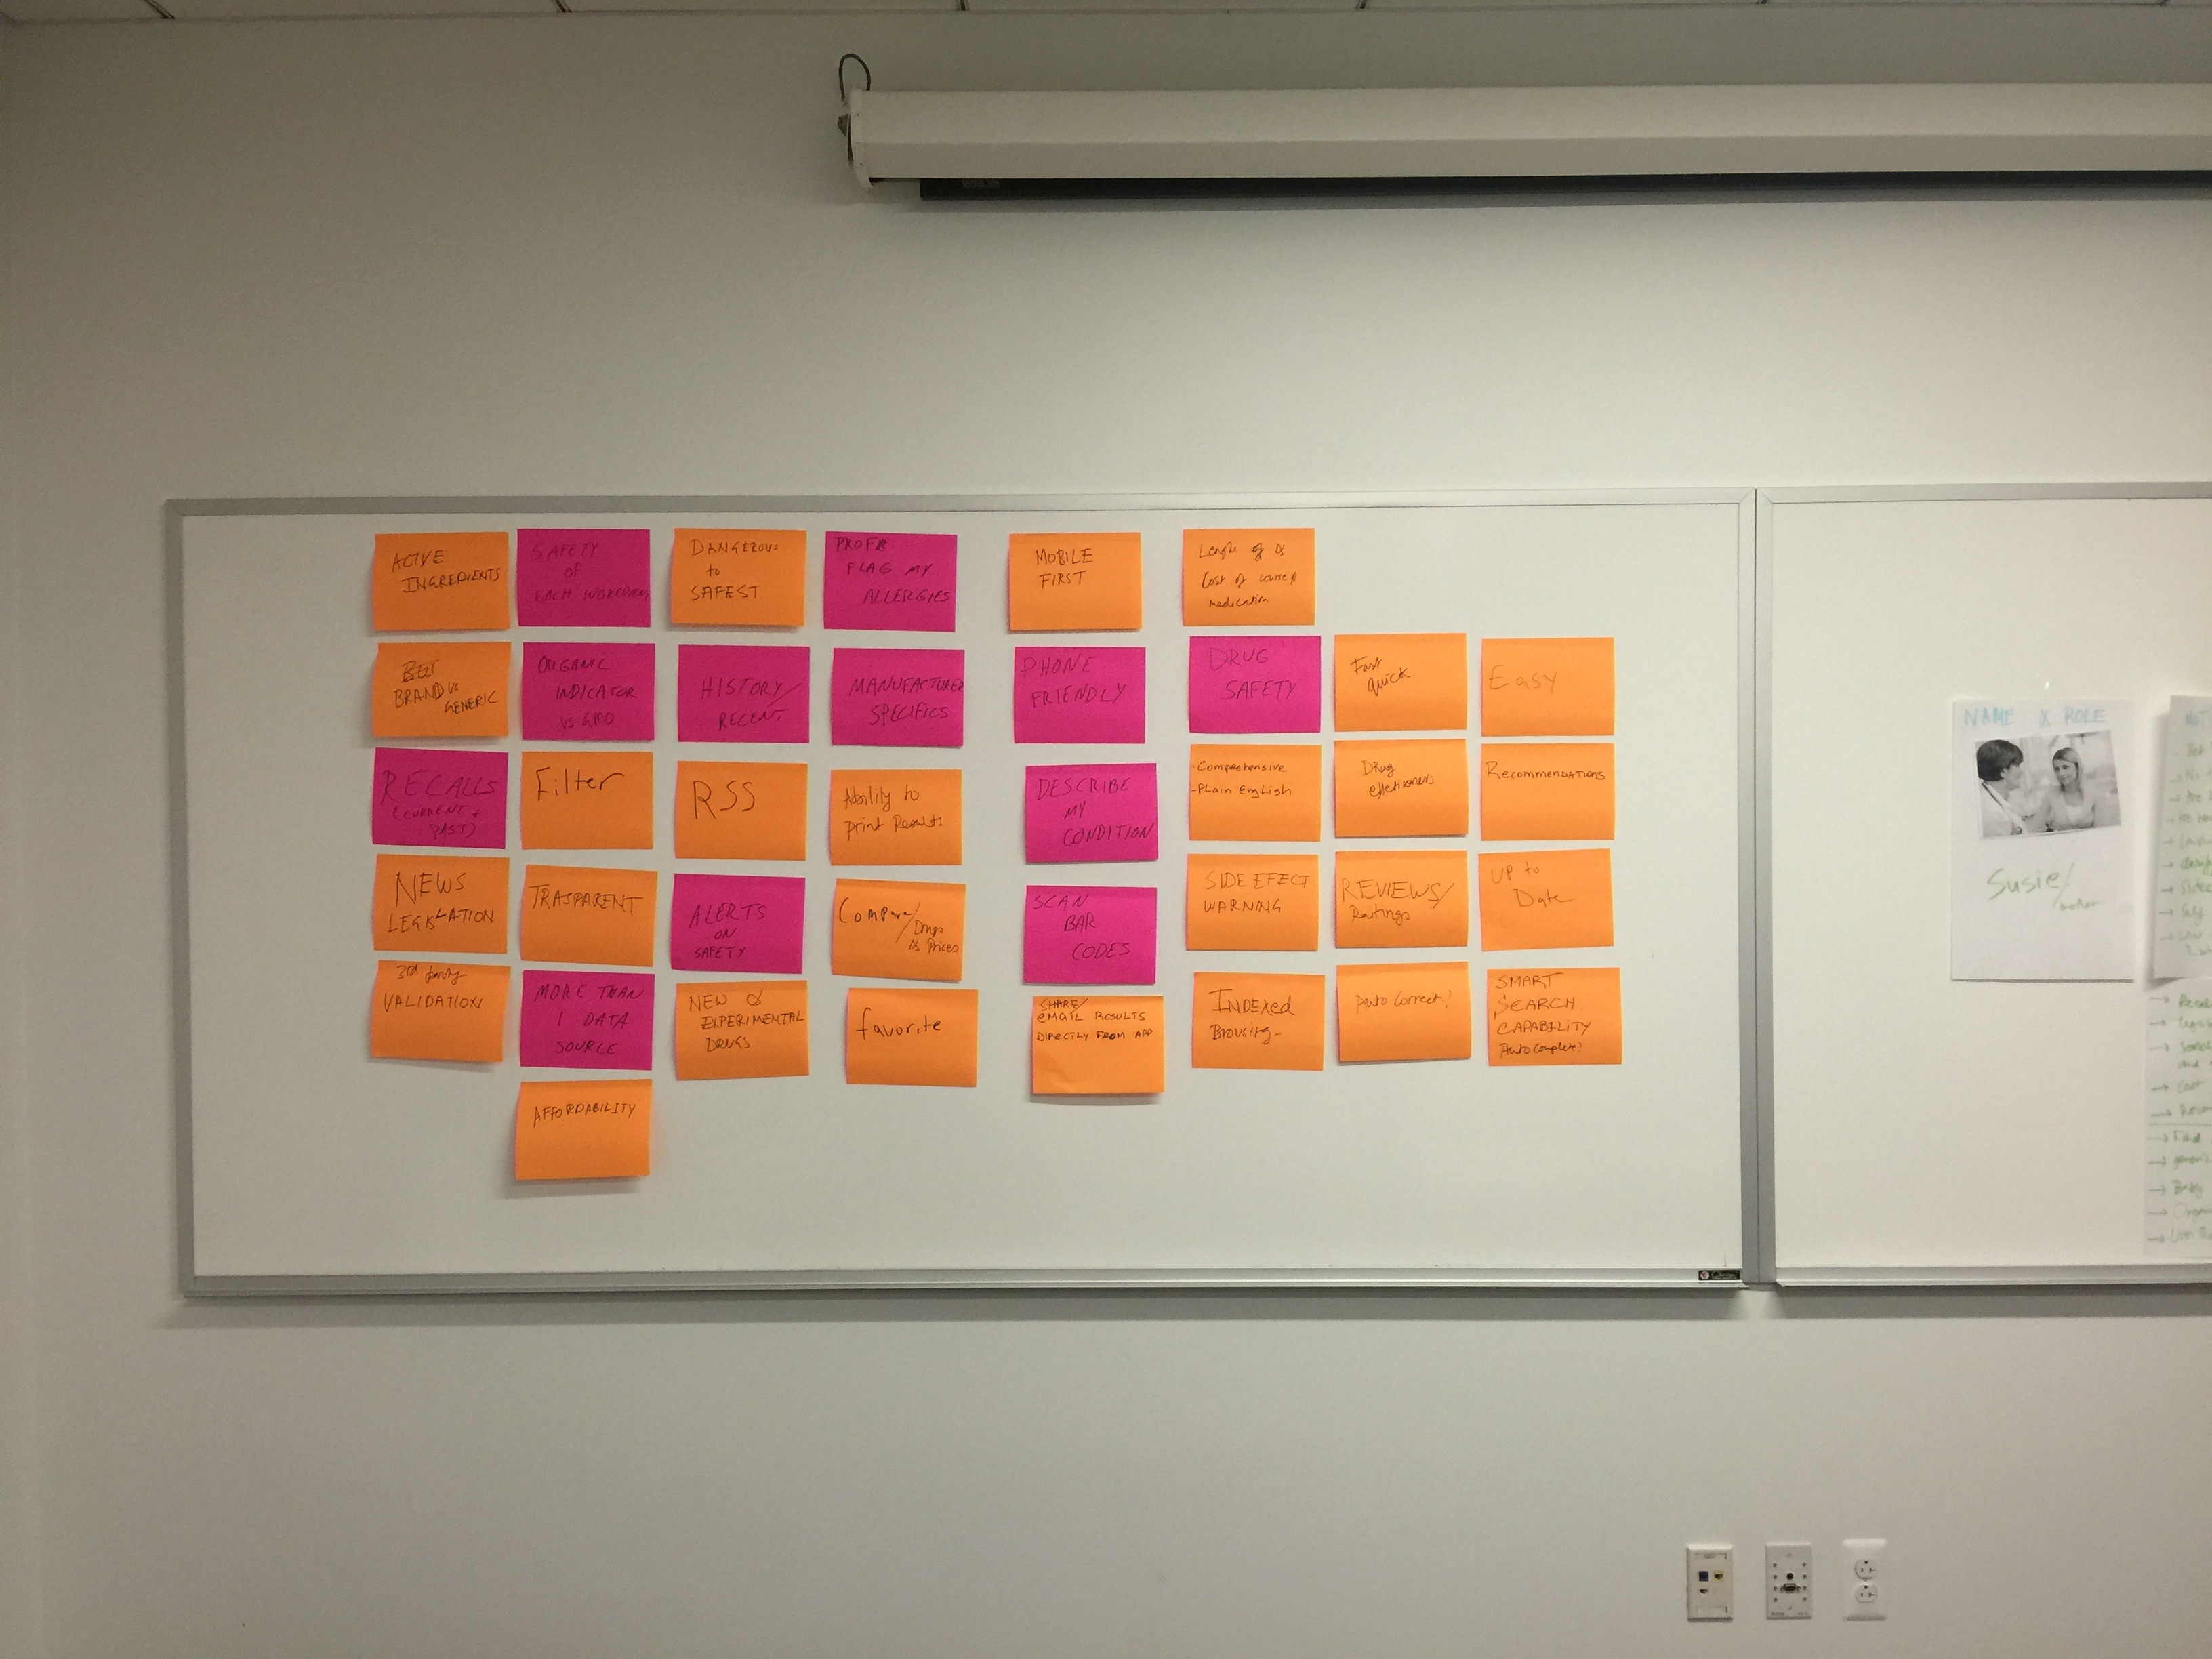 ACTIVE
INGREDIENTS
SAFETY
OF
EACH INGREDIENT
DANGEROUS
to
SAFEST
FLAG MY
ALLERGIES
MOBILE
FIRST
Length of
Cost of
medication
BRAND VS
GENERIC
ORGANIC
INDICATOR
VS GMO
HISTORY/
RECENT
MANUFACTURER
SPECIFICS
PHONE
FRIENDLY
DRUG
SAFETY
Fast
Quick
Easy
RECALLS
(CURRENT +
PAST)
Filter
RSS
Ability to
print Results
DESCRIBE
MY
CONDITION
-Comprehensive
-Plain English
Drug
effectiveness
RECOMMENDATIONS
NEWS
LEGISLATION
TRASPARENT
ALERTS
ON
SAFETY
Compare/
Drugs
& Prices
SCAN
BAR
CODES
SIDE EFFECT
WARNING
REVIEWS/
Raitings
UP to
Date
3rd party
VALIDATION
MORE THAN
1 DATA
SOURCE
NEW &
EXPERIMENTAL
DRUGS
favorite
SHARE/
EMAIL RESULTS
DIRECTLY FROM APP
INDEXED
Browsing-
Auto Correct!
SMART
SEARCH
CAPABILITY
Auto Complete!
AFFORDABILITY
NAME & ROLE
Susie/
mother